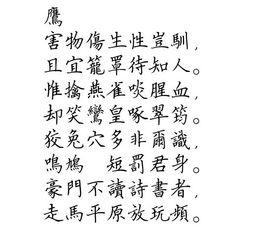 鷹
害物傷生性豈馴，
且宜籠罩待知人。
惟擒燕雀啖腥血，
却笑鸞皇啄翠筠。
狡兔穴多非爾識，
鳴鳩　短罰君身。
豪門不讀詩書者，
走馬平原放玩頻。